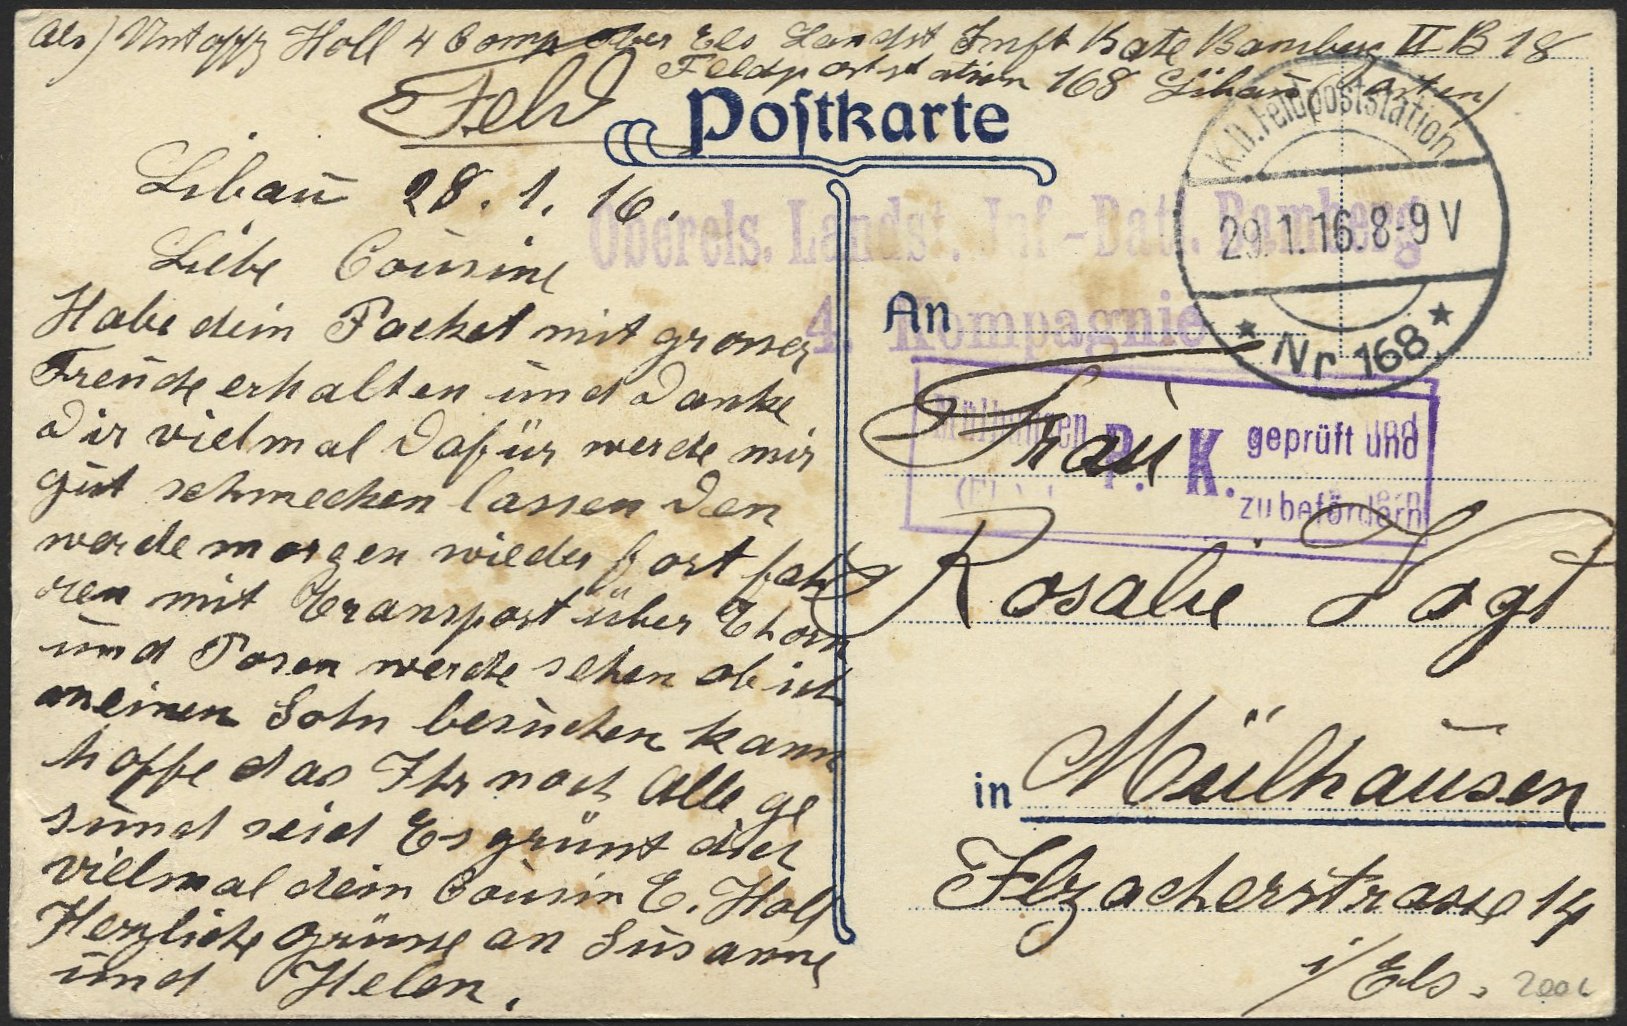 Abs) Untoffz Holl 4 Comp Ober Els Landst Inft Batl Bamberg II B 18
Feldpoststation 168 Libau (Osten)
Feld
Postkarte
K.D. Feldpoststation
29.1.16. 8-9 V
* Nr 168 *
Oberels. Landst. Inf-Batl. Bamberg
4. Kompagnie
Libau 28. 1. 16.
Liebe Cousine
Habe dein Packet mit groser
Freude erhalten und Danke
Dir vielmal Dafür werde mir
gut schmecken lassen Den
werde morgen wieder fort fah
ren mit Transport über Thorn
und Posen werde sehen ob ich
meinen Sohn besuchen kann
hoffe das Ihr noch Alle ge
sund seid Es grünst dich
vielmal dein Cousin E. Holl
Herzliche grüse an Susanne
und Helen.
An
Mülhausen
P. K.
geprüft und
zu befördern
Frau
Rosalie Vogt
in Mülhausen
Ilzacherstrasse 14
i/Els.